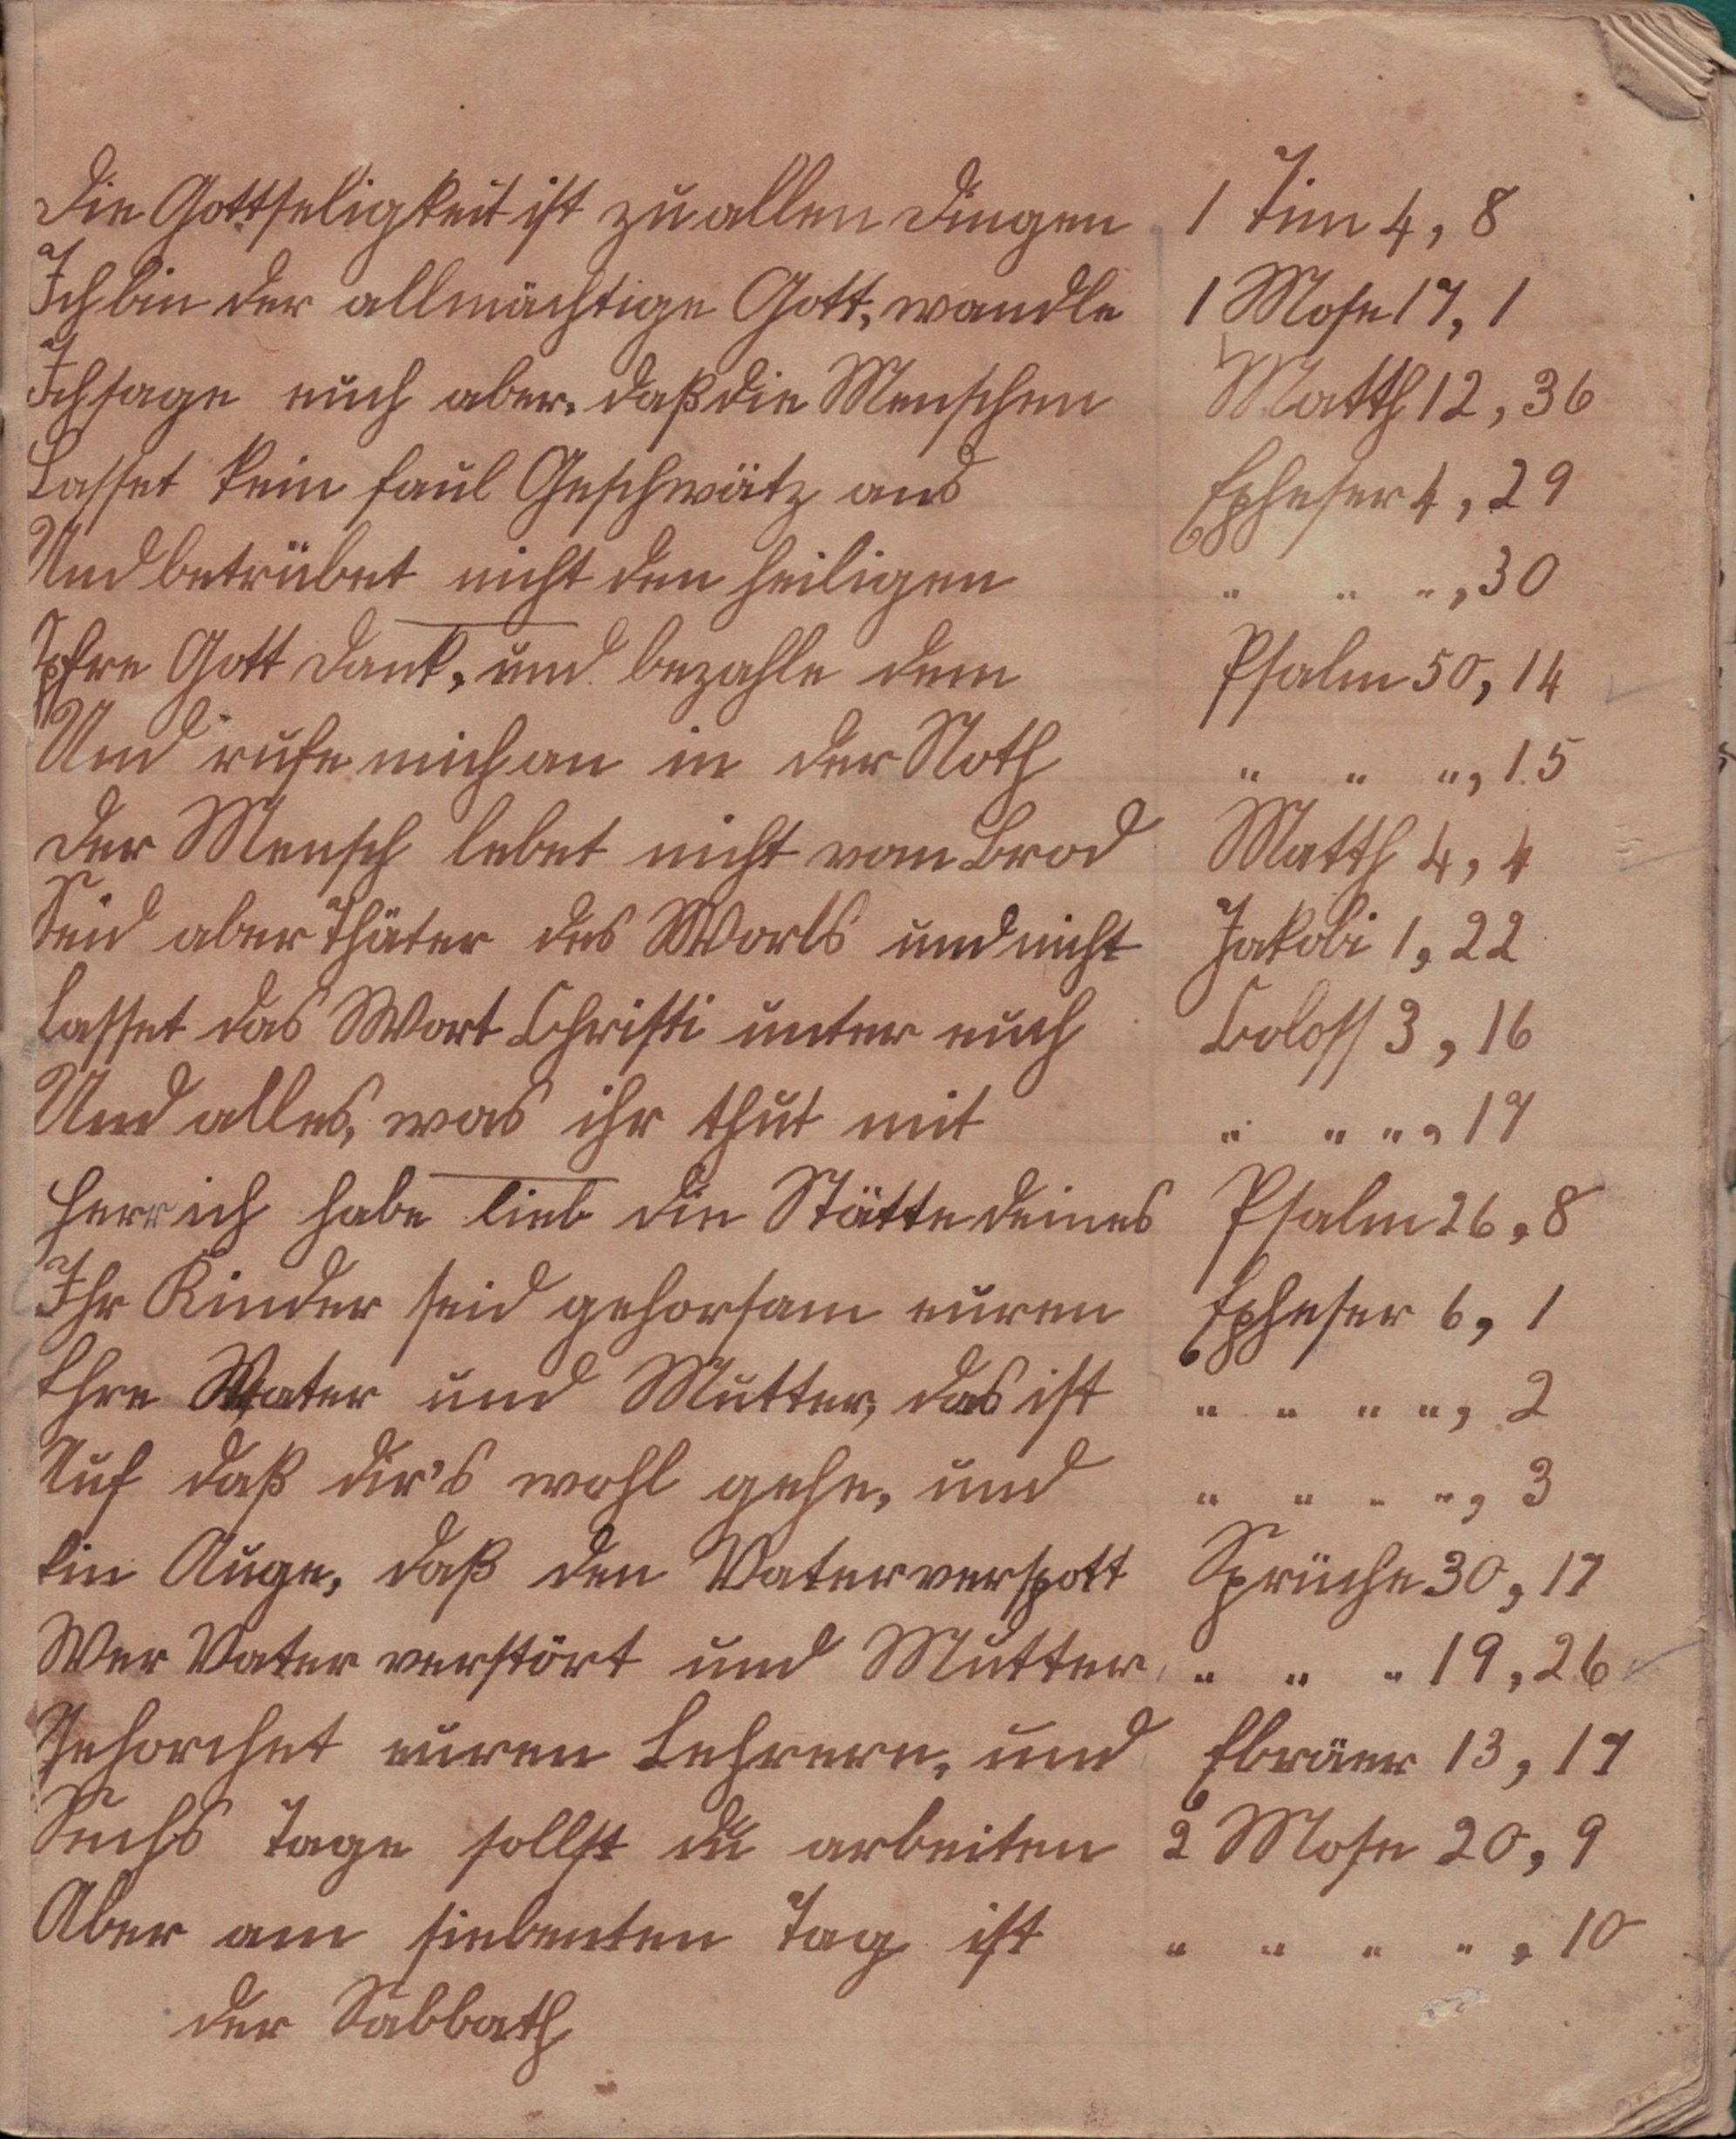 Die Gottseligkeit ist zu allen Dingen 1 Tim 4, 8
Ich bin der allmächtige Gott, wandle 1 Mose 17, 1
Ich sage euch aber, daß die Menschen Matth 12, 36
Lasset kein faul Geschwätz aus Epheser 4, 29
Und betrübet nicht den heiligen " " ", 30
Opfre Gott Dank, und bezahle dem Psalm 50, 14
Und rufe mich an in der Noth " " ", 15
Der Mensch lebet nicht vom Brod Matth 4, 4
Seid aber Thäter des Worts und nicht Jakobi 1, 22
Lasset das Wort Christi unter euch Coloss 3, 16
Und alles, was ihr thut mit " " ", 17
Herr ich habe lieb die Stätte deines Psalm 26, 8
Ihr Kinder seid gehorsam euren Epheser 6, 1
Ehre Vater und Mutter, das ist " " " ", 2
Auf daß dir's wohl gehe, und " " " ", 3
Ein Auge, daß den Vater verspott Sprüche 30, 17
Wer Vater verstört und Mutter " " " 19, 26
Gehorchet euren Lehrern, und Ebräer 13, 17
Sechs Tage sollst du arbeiten 2 Mose 20, 9
Aber am siebenten Tag ist " " " ", 10
der Sabbath